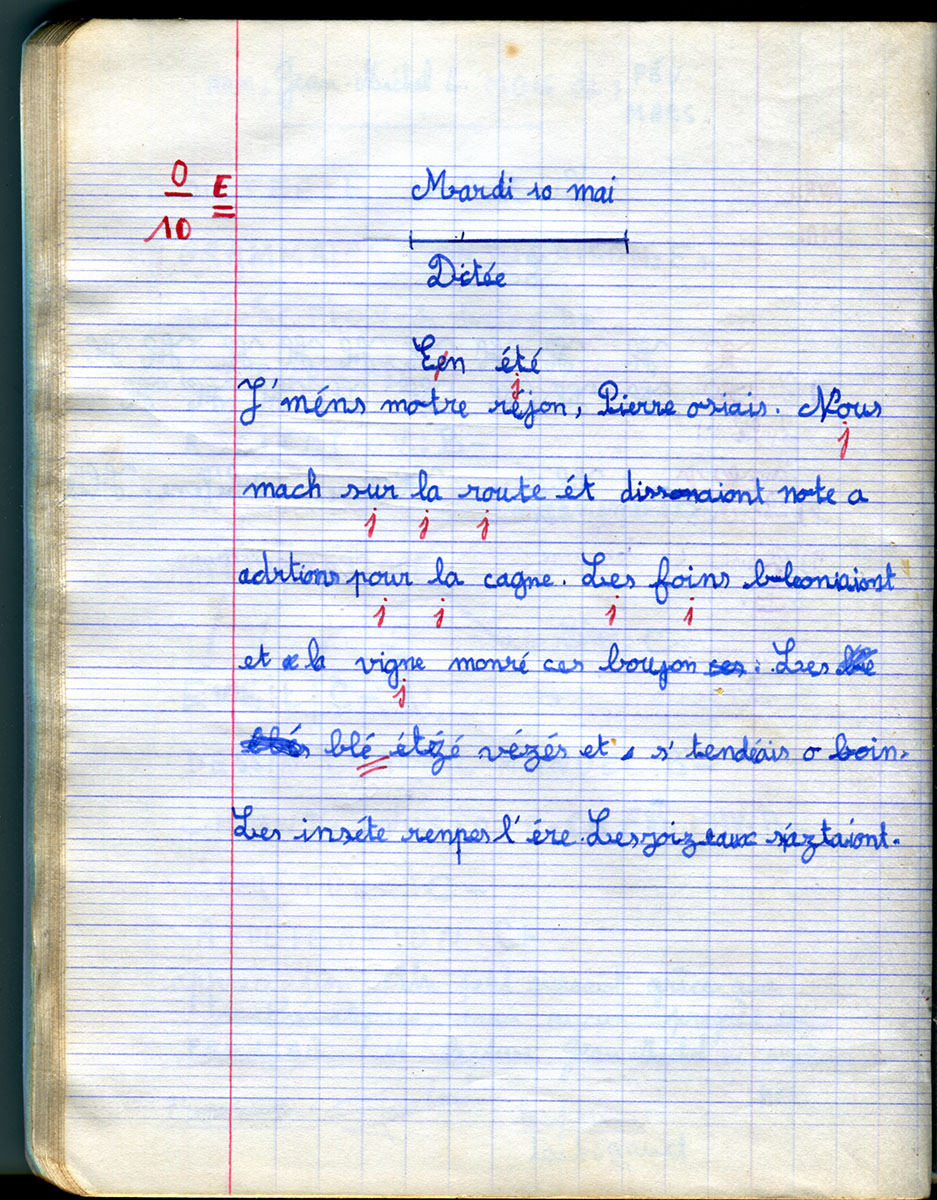 0
10
E
Mardi 10 mai
Dictée
Een été
J'méns motre réjon, Pierre osiais. Nous
j
j
mach sur la route ét dissonaiont note a
j j j
adrtions pour la cagne. Les foins
j j j j
et la vigne monré ces boujon ses. Les
j
blé été vézés et s'tendéais o boin.
Les inséte renpes l'ére. Leszoizeaux s'aztaiont.